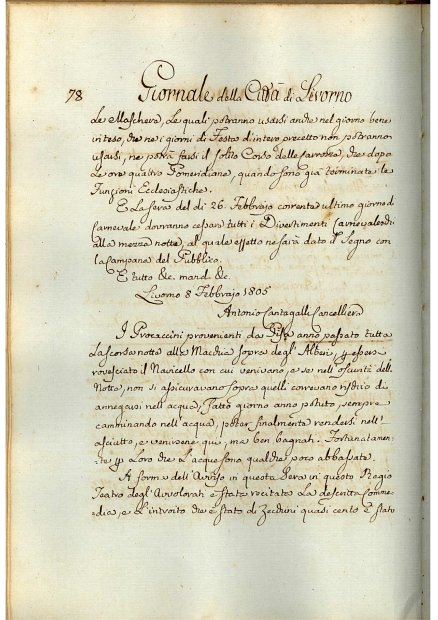 78 Giornale della Città di Livorno
Le Maschera, Le quali potranno usarsi anche nel giorno bene
inteso, che ne i giorni di Festa d'intero precetto non potranno
usarsi, ne potrà farsi il solito Corso delle carrozze, che dopo
Le ore quattro Pomeridiane, quando sono già terminate le
Funzioni Ecclesiastiche.
E La sera del dì 26. Febbrajo corrente ultimo giorno di
Carnevale dovranno cessare tutti i Divertimenti Carnevaleschi
alla mezza notte, al quale effetto ne sarà dato il segno con
la Campana del Pubblico.
E tutto &c. mand. &c.
Livorno 8 Febbrajo 1805
Antonio Santagalli Cancelliere
I Procaccini provenienti da Pisa anno passato tutta
La scorsa notte alle Macchia sopra degl'Alberi, p essersi
rovesciato il Navicello con cui venivano, e se nell'oscurità della
Notte, non si assicuravano sopra quelli correvano rischio di
annegarsi nell'acqua, Fatto giorno anno potuto, sempre
camminando nell'acqua, poter finalmente rendersi nell'
asciutto, e venirsene qui, ma ben bagnati. Fortunatamen-
te p Loro che L'acque sono qualche poco abbassate.
A forma dell'Avviso in questa Sera in questo Regio
Teatro degl'Avvolorati è stata recitata La descritta Comme-
dia, e L'introito che è stato di Zecchini quasi cento è stato